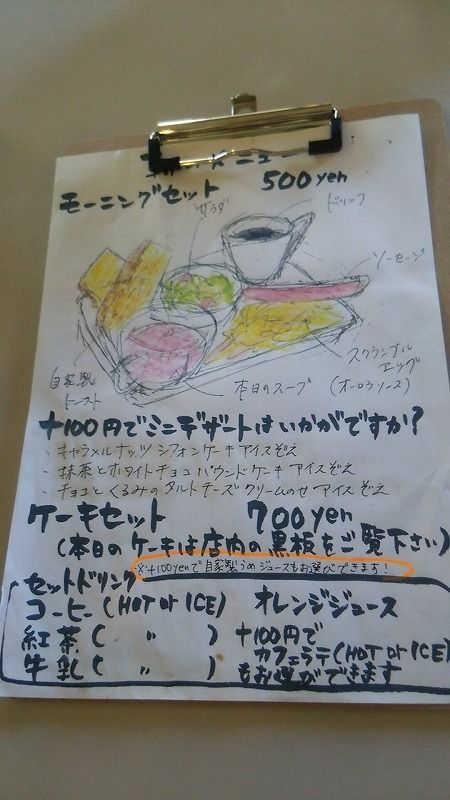 メニュー
モーニングセット 500yen
サラダ
ドリンク
ソーセージ
スクランブル
エッグ
(オーロラソース)
本日のスープ
自家製
トースト
+100円でミニデザートはいかがですか?
・キャラメルナッツシフォンケーキアイスぞえ
・抹茶とホワイトチョコパウンドケーキアイスぞえ
・チョコとくるみのタルトチーズクリームのせアイスぞえ
ケーキセット 700yen
(本日のケーキは店内の黒板をご覧下さい)
※+100yenで自家製うめジュースもお選びできます!
セットドリンク
コーヒー(HOT or ICE) オレンジジュース
紅茶( 〃 ) +100円で
カフェラテ(HOT or ICE)
牛乳( 〃 ) もお選びできます